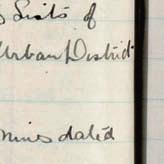 Lists of
Urban District
dated